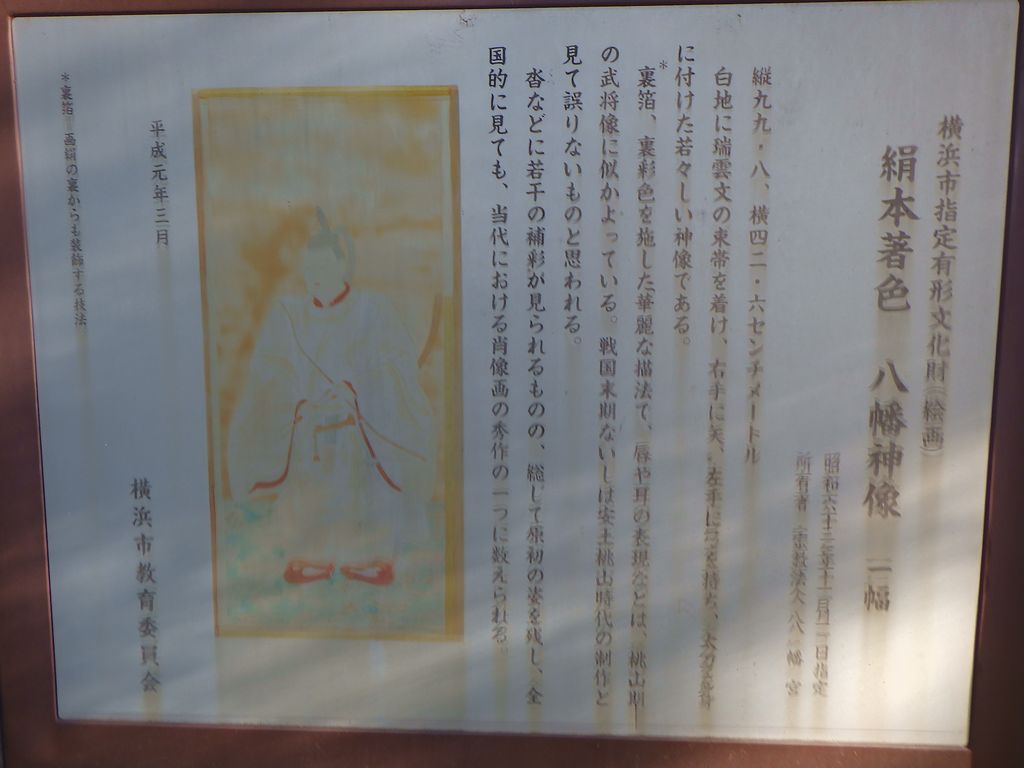 横浜市指定有形文化財(絵画)
絹本著色 八幡神像 一幅
昭和六十三年十一月一日指定
所有者 宗教法人 八幡宮
縦九九・八、横四二・六センチメートル
白地に瑞雲文の束帯を着け、右手に矢、左手に弓を持ち、太刀を身
に付けた若々しい神像である。
*裏箔、裏彩色を施した華麗な描法で、唇や耳の表現などは、桃山期
の武将像に似かよっている。戦国末期ないしは安土桃山時代の制作と
見て誤りないものと思われる。
沓などに若干の補彩が見られるものの、総じて原初の姿を残し、全
国的に見ても、当代における肖像画の秀作の一つに数えられる。
平成元年三月
横浜市教育委員会
*裏箔 画絹の裏からも装飾する技法